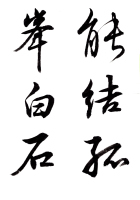 能结孤
峯白石